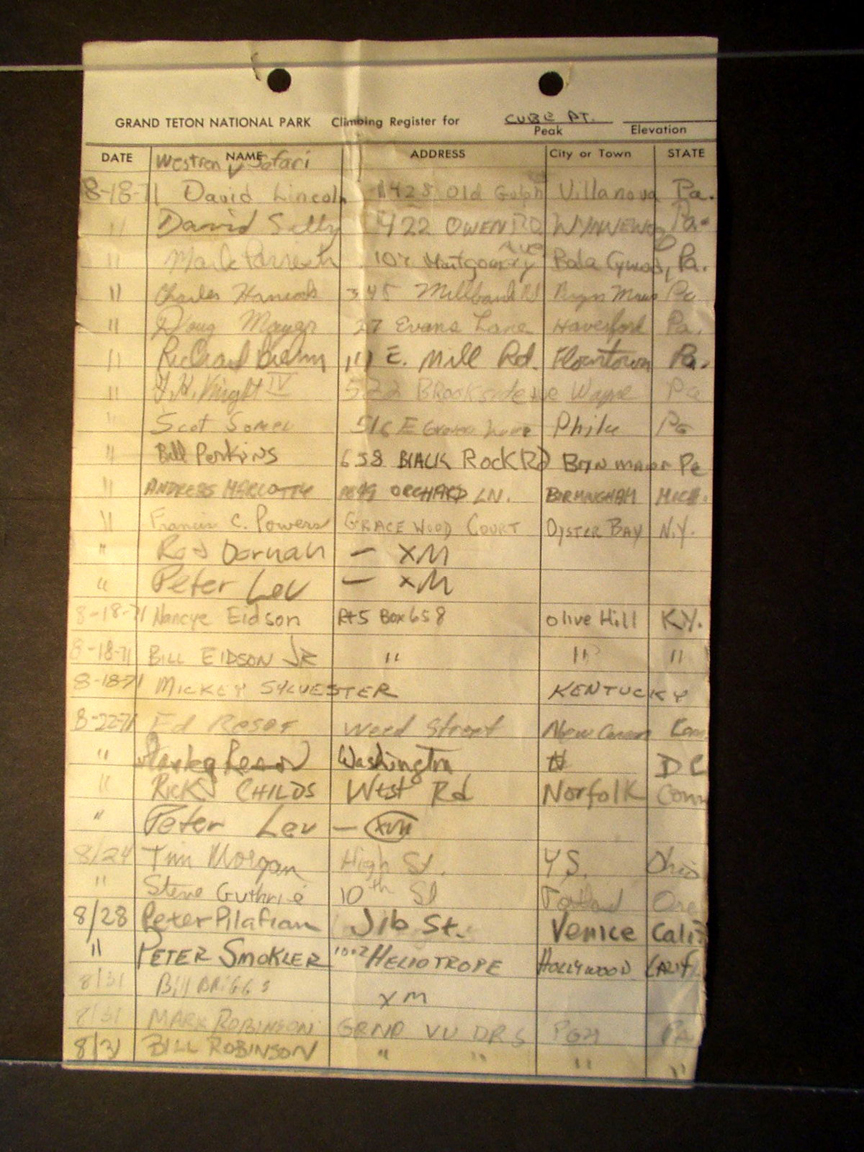 GRAND TETON NATIONAL PARK Climbing Register for CUBE PT.
Peak Elevation
DATE NAME ADDRESS City or Town STATE
Westren Safari
8-18-71 David Lincoln 1428 Old Gulph Villanova Pa.
" David Selly 422 OWEN RD WYNNEWOOD Pa.
" Mark 107 Montgomery Ave Bala Cynwyd, Pa.
" Charles 345 Millbank Rd Bryn Mawr Pa
" Doug Mayer 27 Evans Lane Haverford Pa.
" Richard 111 E. Mill Rd. Flourtown Pa.
" Knight IV 522 Brookside Wayne Pa
" Scot 516 E Lane Phila Pa
" Bill Perkins 658 BlACK Rock RD Bryn mawr Pa
" ANDRESS ORCHARD LN. BIRMINGHAM MICH.
" Francis C. Powers GRACEWOOD COURT OYSTER BAY N.Y.
" Rod Dornan — XM
" Peter Lev — XM
8-18-71 Nancye Eidson Rt 5 Box 658 olive Hill KY.
8-18-71 BILL EIDSON JR " " "
8-18-71 MICKEY SYLVESTER KENTUCKY
8-22-71 Ed Weed Street New Canaan Conn.
" Washington DC
" RICK CHILDS West Rd Norfolk Conn
" Peter Lev — XM
8/24 Tim Morgan High St. Y.S. Ohio
" Steve Guthrie 10th St Portland Ore
8/28 Peter Pilafian Jib St. Venice Calif
" PETER SMOKLER 1012 HELIOTROPE HOLLYWOOD CALIF.
8/31 Bill BRIGGS XM
8/31 MARK ROBINSON GRND VU DRS PGH PA
8/31 BILL ROBINSON " " " "